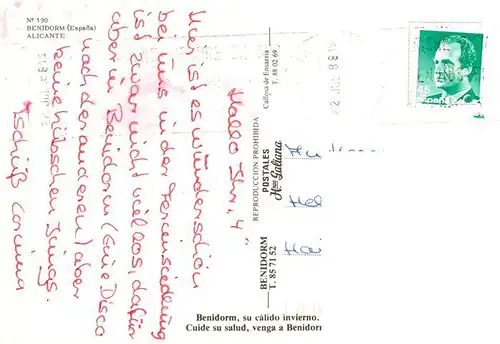 Nº 190
BENIDORM (España)
ALICANTE
Hallo Ihr "4"
Hier ist es wunderschön
bei uns in der Feriensiedlung
ist zwar nicht vielos, dafür
aber in Benidorm (Eine Disco
nach der anderen) aber
keine hübschen Jungs.
Tschüß Corinna
Callosa de Ensarria
T. 88 02 69
REPRODUCCION PROHIBIDA
POSTALES
Hnos Galiana
BENIDORM
T. 85 71 52
España
Benidorm, su cálido invierno.
Cuide su salud, venga a Benidorm